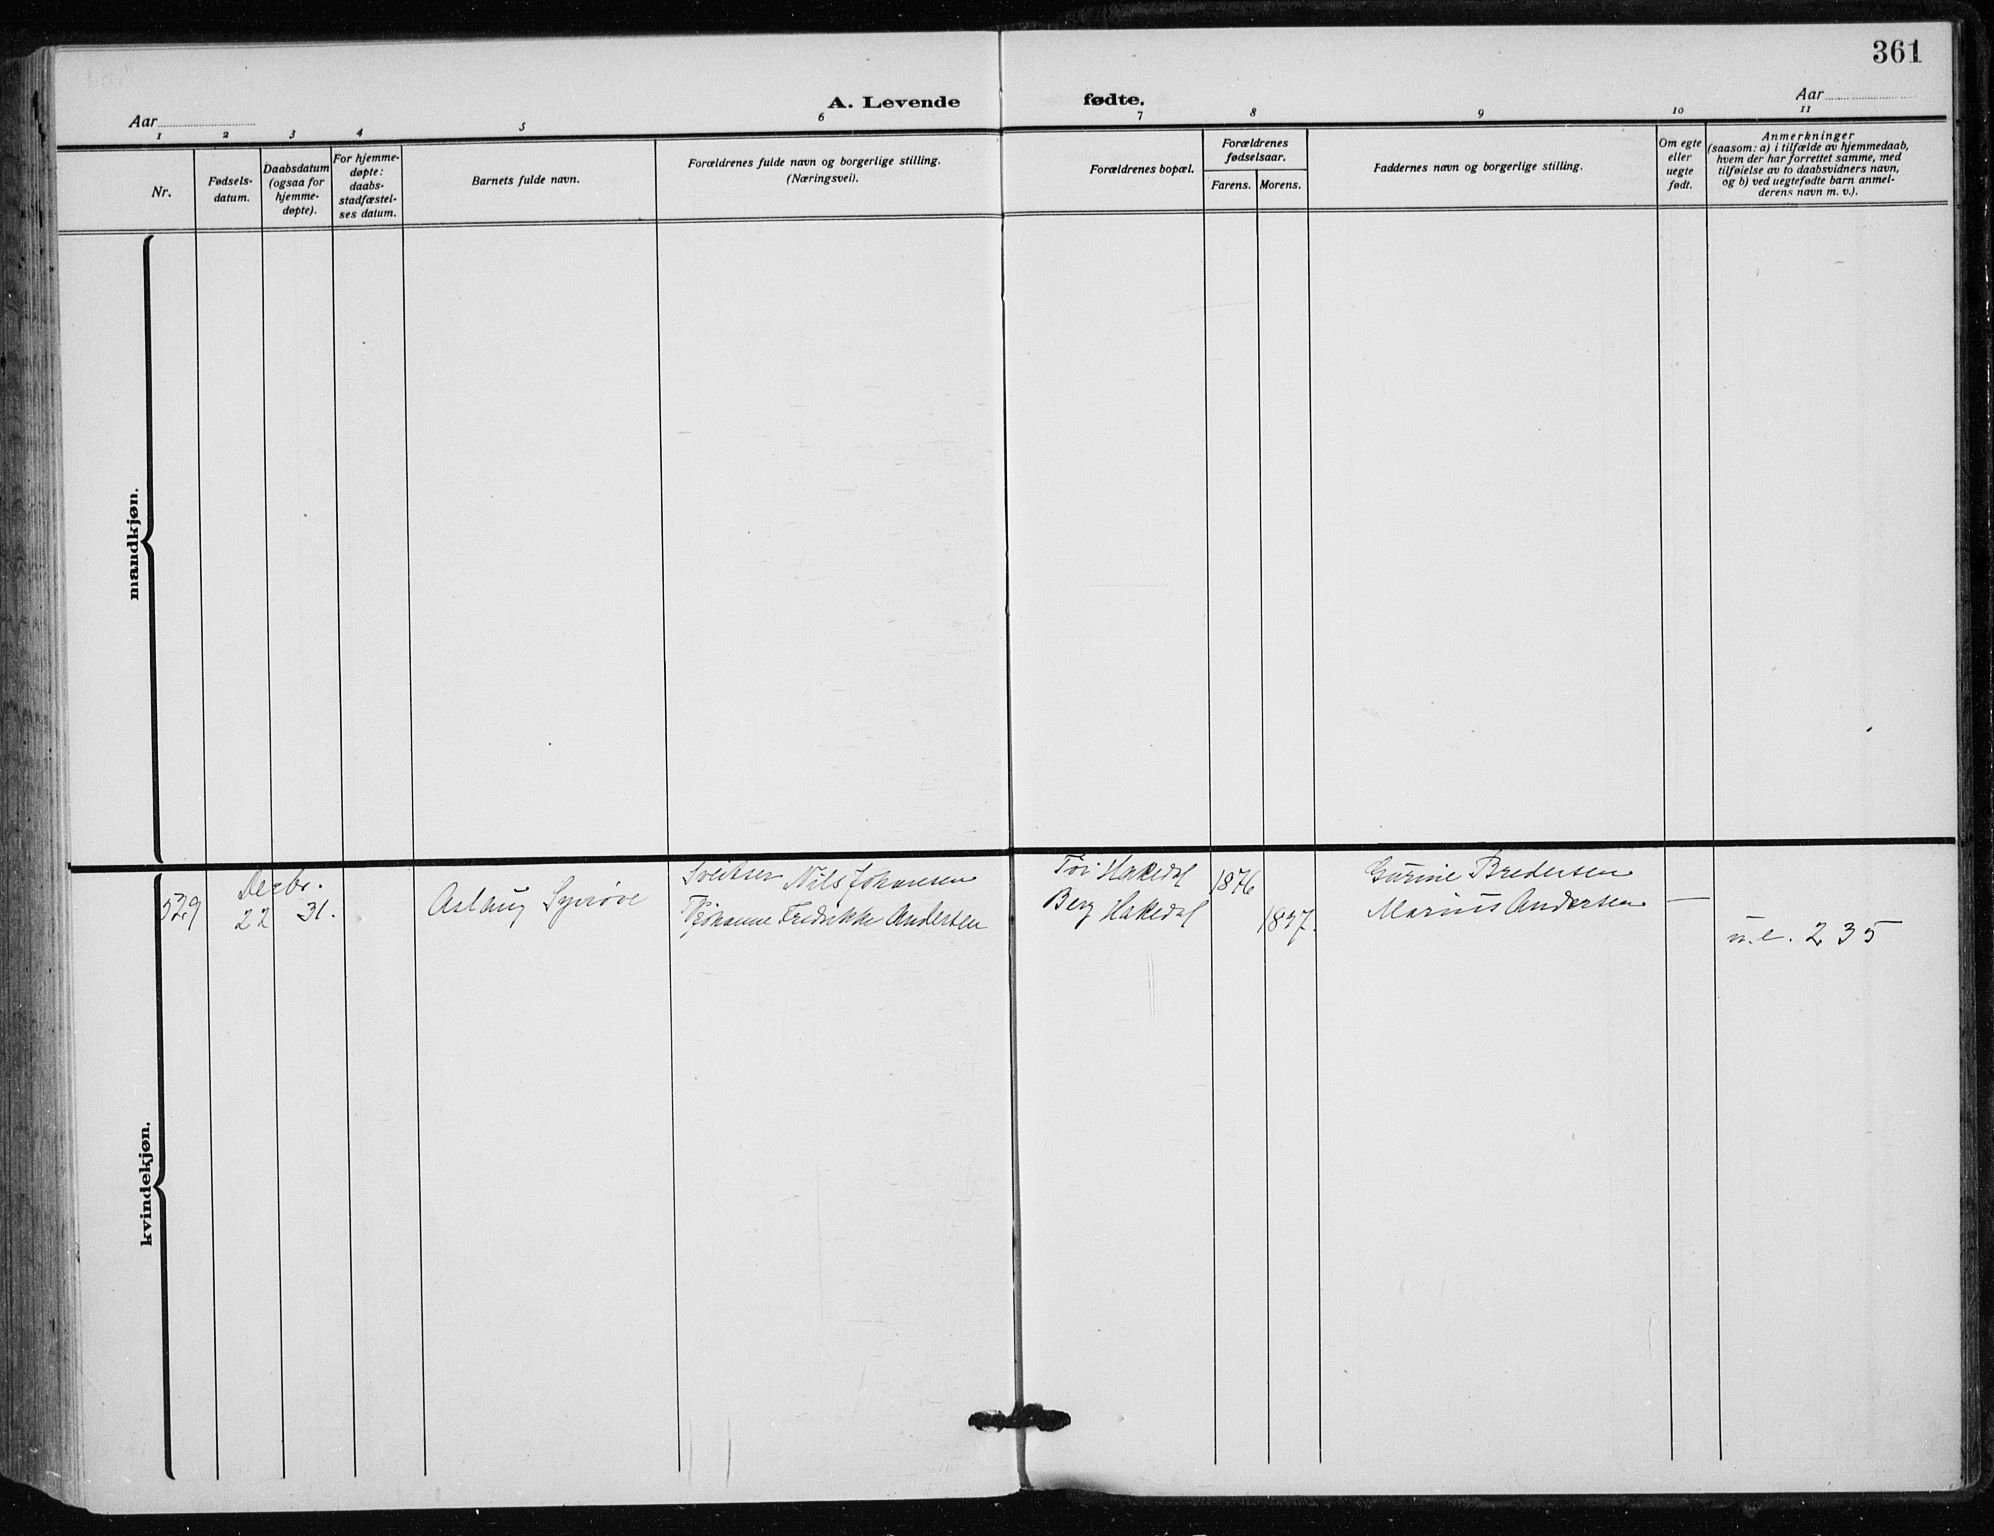 361
A. Levende fødte.
Aar
Aar
1 2 3 4 5 6 7 8 9 10 11
Nr.
Fødsels-
datum.
Daabsdatum
(ogsaa for
hjemme-
døpte).
For hjemme-
døpte:
daabs-
stadfæstel-
ses datum.
Barnets fulde navn.
Forældrenes fulde navn og borgerlige stilling.
(Næringsvei).
Forældrenes bopæl.
Forældrenes
fødselsaar.
Farens. Morens.
Faddernes navn og borgerlige stilling.
Om egte
eller
uegte
født.
Anmerkninger
(saasom: a) i tilfælde av hjemmedaab,
hvem der har forrettet samme, med
tilføielse av to daabsvidners navn,
og b) ved uegtefødte barn anmel-
derens navn m. v.).
mandkjøn.
kvindekjøn.
529
Decbr.
22
31.
Aslaug Synnøve
Sveitser Nils Johansen
Johanne Fredrikke Andersen
Hakedal
Berg Hakedal
1876
Gurine Bredersen
Marius Andersen
u.e. 235